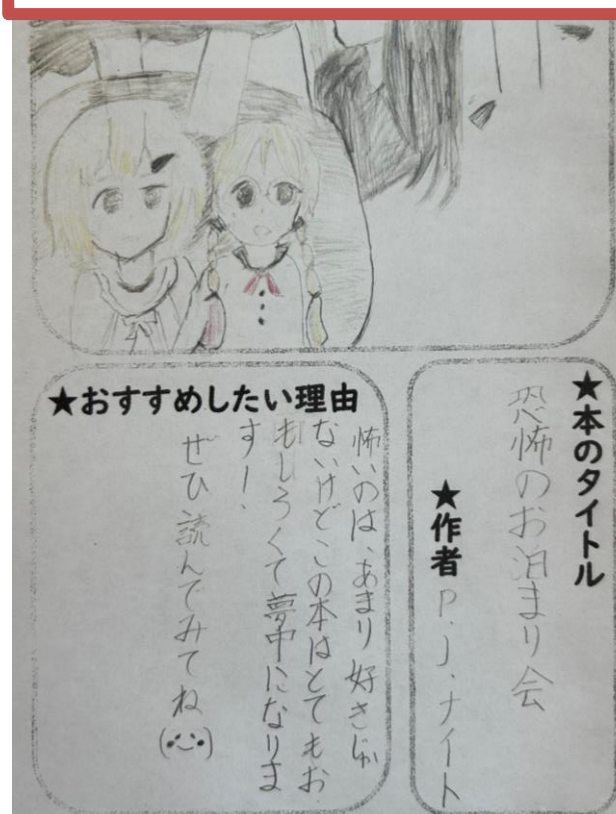 ★本のタイトル
恐怖のお泊まり会
★作者
P.J.ナイト
★おすすめしたい理由
怖いのは、あまり好きじゃ
ないけどこの本はとてもお
もしろくて夢中になりま
すー、
ぜひ読んでみてね